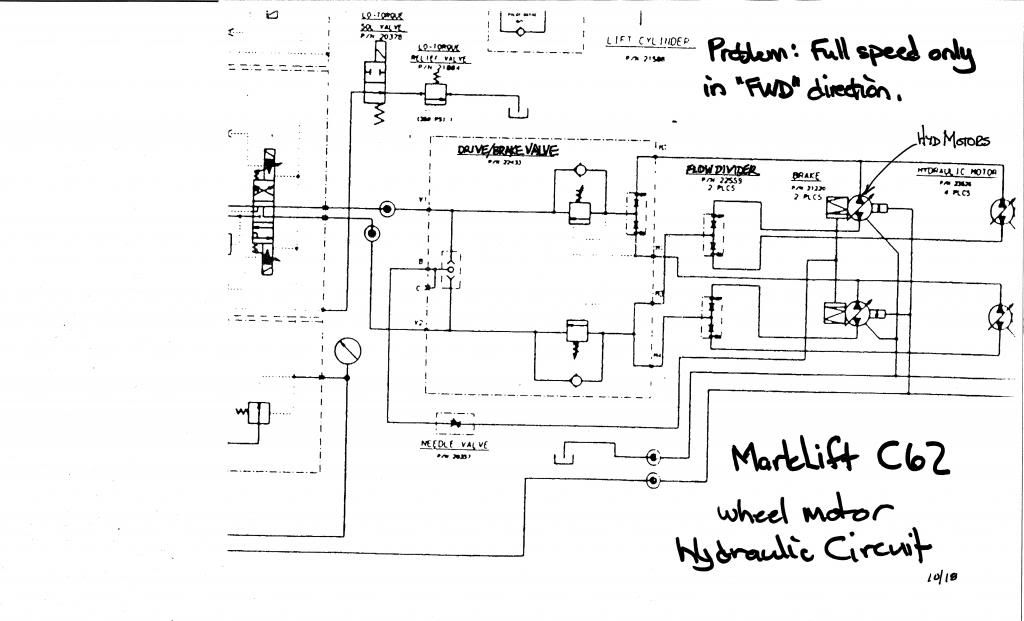 LO-TORQUE
SOL VALVE
P/N 20378
LO-TORQUE
RELIEF VALVE
P/N 21884
LIFT CYLINDER
P/N 21588
Problem: Full speed only
in "FWD" direction.
HYD MOTORS
DRIVE/BRAKE VALVE
P/N 22433
FLOW DIVIDER
P/N 22559
2 PLCS
BRAKE
P/N 21220
2 PLCS
HYDRAULIC MOTOR
4 PLCS
V1
B
C
V2
NEEDLE VALVE
P/N 20357
MarkLift C62
wheel motor
Hydraulic Circuit
10/18